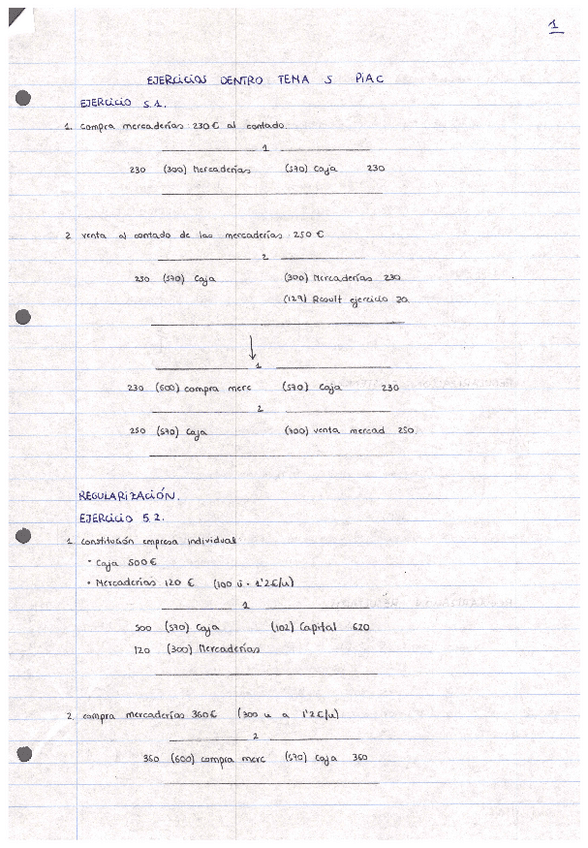 1
EJERCICIOS DENTRO TEMA 5 PIAC
EJERCICIO 5.1.
1. compra mercaderías 230€ al contado.
1
230 (300) Mercaderías (570) Caja 230
2 venta al contado de las mercaderías 250 €
2
250 (570) Caja (300) Mercaderías 230
(129) Result ejercicio 20.
1
230 (600) compra merc (570) Caja 230
2
250 (570) Caja (700) venta mercad 250
REGULARIZACIÓN.
EJERCICIO 5.2.
1 constitución empresa individual
• Caja 500€
• Mercaderías 120 € (100 u · 1'2€/u)
1
500 (570) Caja (102) Capital 620
120 (300) Mercaderías
2. compra mercaderías 360€ (300 u a 1'2€/u)
2
360 (600) compra merc (570) Caja 360